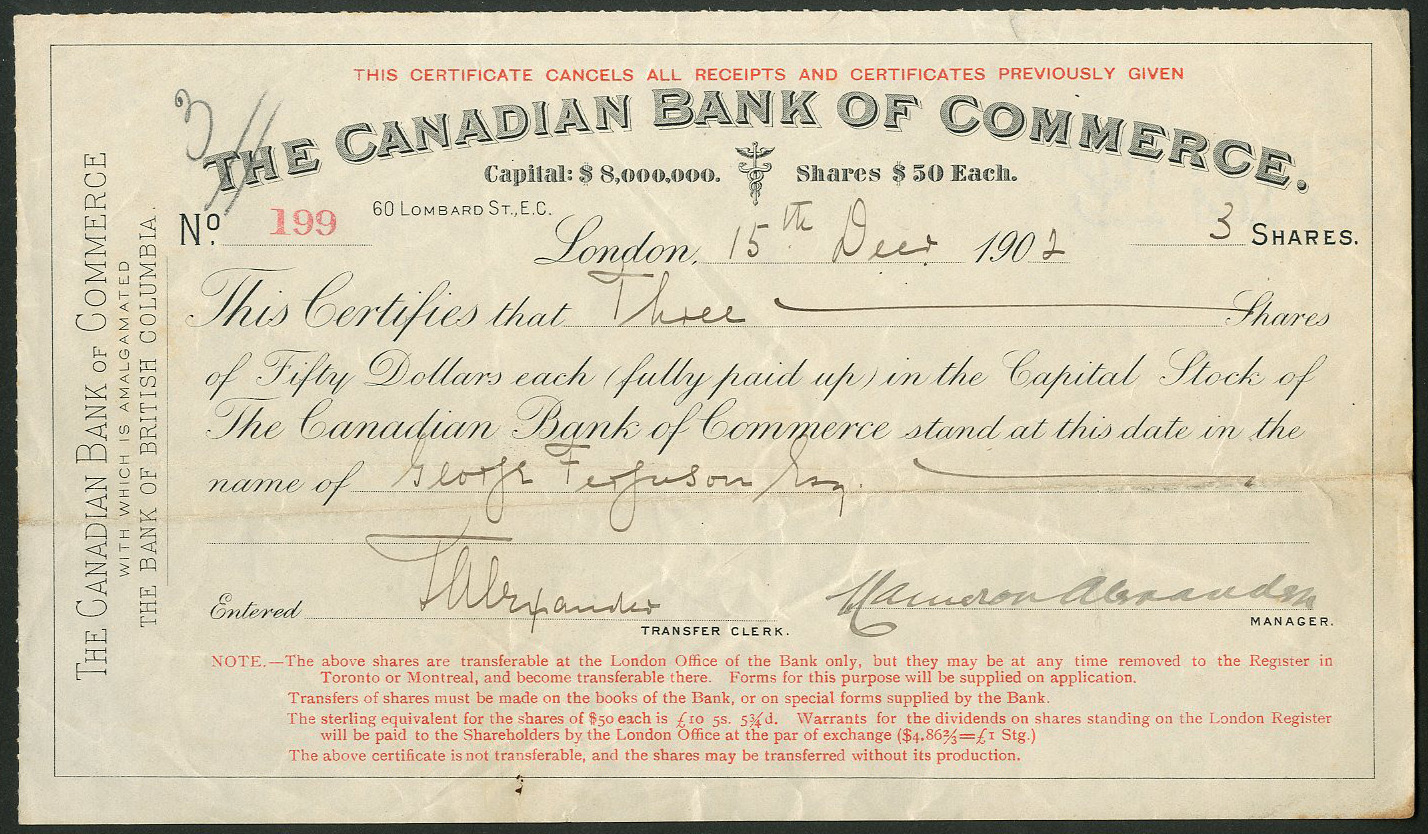 THIS CERTIFICATE CANCELS ALL RECEIPTS AND CERTIFICATES PREVIOUSLY GIVEN
3
THE CANADIAN BANK OF COMMERCE.
Capital: $8,000,000. Shares $50 Each.
60 LOMBARD ST., E.C.
No. 199
London, 15th Decr 1902 3 SHARES.
This Certifies that Three Shares
of Fifty Dollars each (fully paid up) in the Capital Stock of
The Canadian Bank of Commerce stand at this date in the
name of George Ferguson Esq.
Entered Alexander
TRANSFER CLERK.
Cameron Alexander
MANAGER.
NOTE.—The above shares are transferable at the London Office of the Bank only, but they may be at any time removed to the Register in
Toronto or Montreal, and become transferable there. Forms for this purpose will be supplied on application.
Transfers of shares must be made on the books of the Bank, or on special forms supplied by the Bank.
The sterling equivalent for the shares of $50 each is £10 5s. 5¾d. Warrants for the dividends on shares standing on the London Register
will be paid to the Shareholders by the London Office at the par of exchange ($4.86⅔=£1 Stg.)
The above certificate is not transferable, and the shares may be transferred without its production.
THE CANADIAN BANK OF COMMERCE
WITH WHICH IS AMALGAMATED
THE BANK OF BRITISH COLUMBIA.